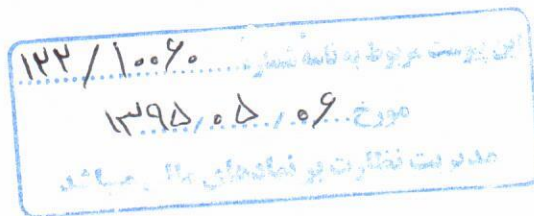 این پیوست مربوط به نامه شماره ۱۲۲/۱۰۰۶۰
مورخ ۱۳۹۵/۰۵/۰۶
مدیریت نظارت بر نهادهای مالی میباشد